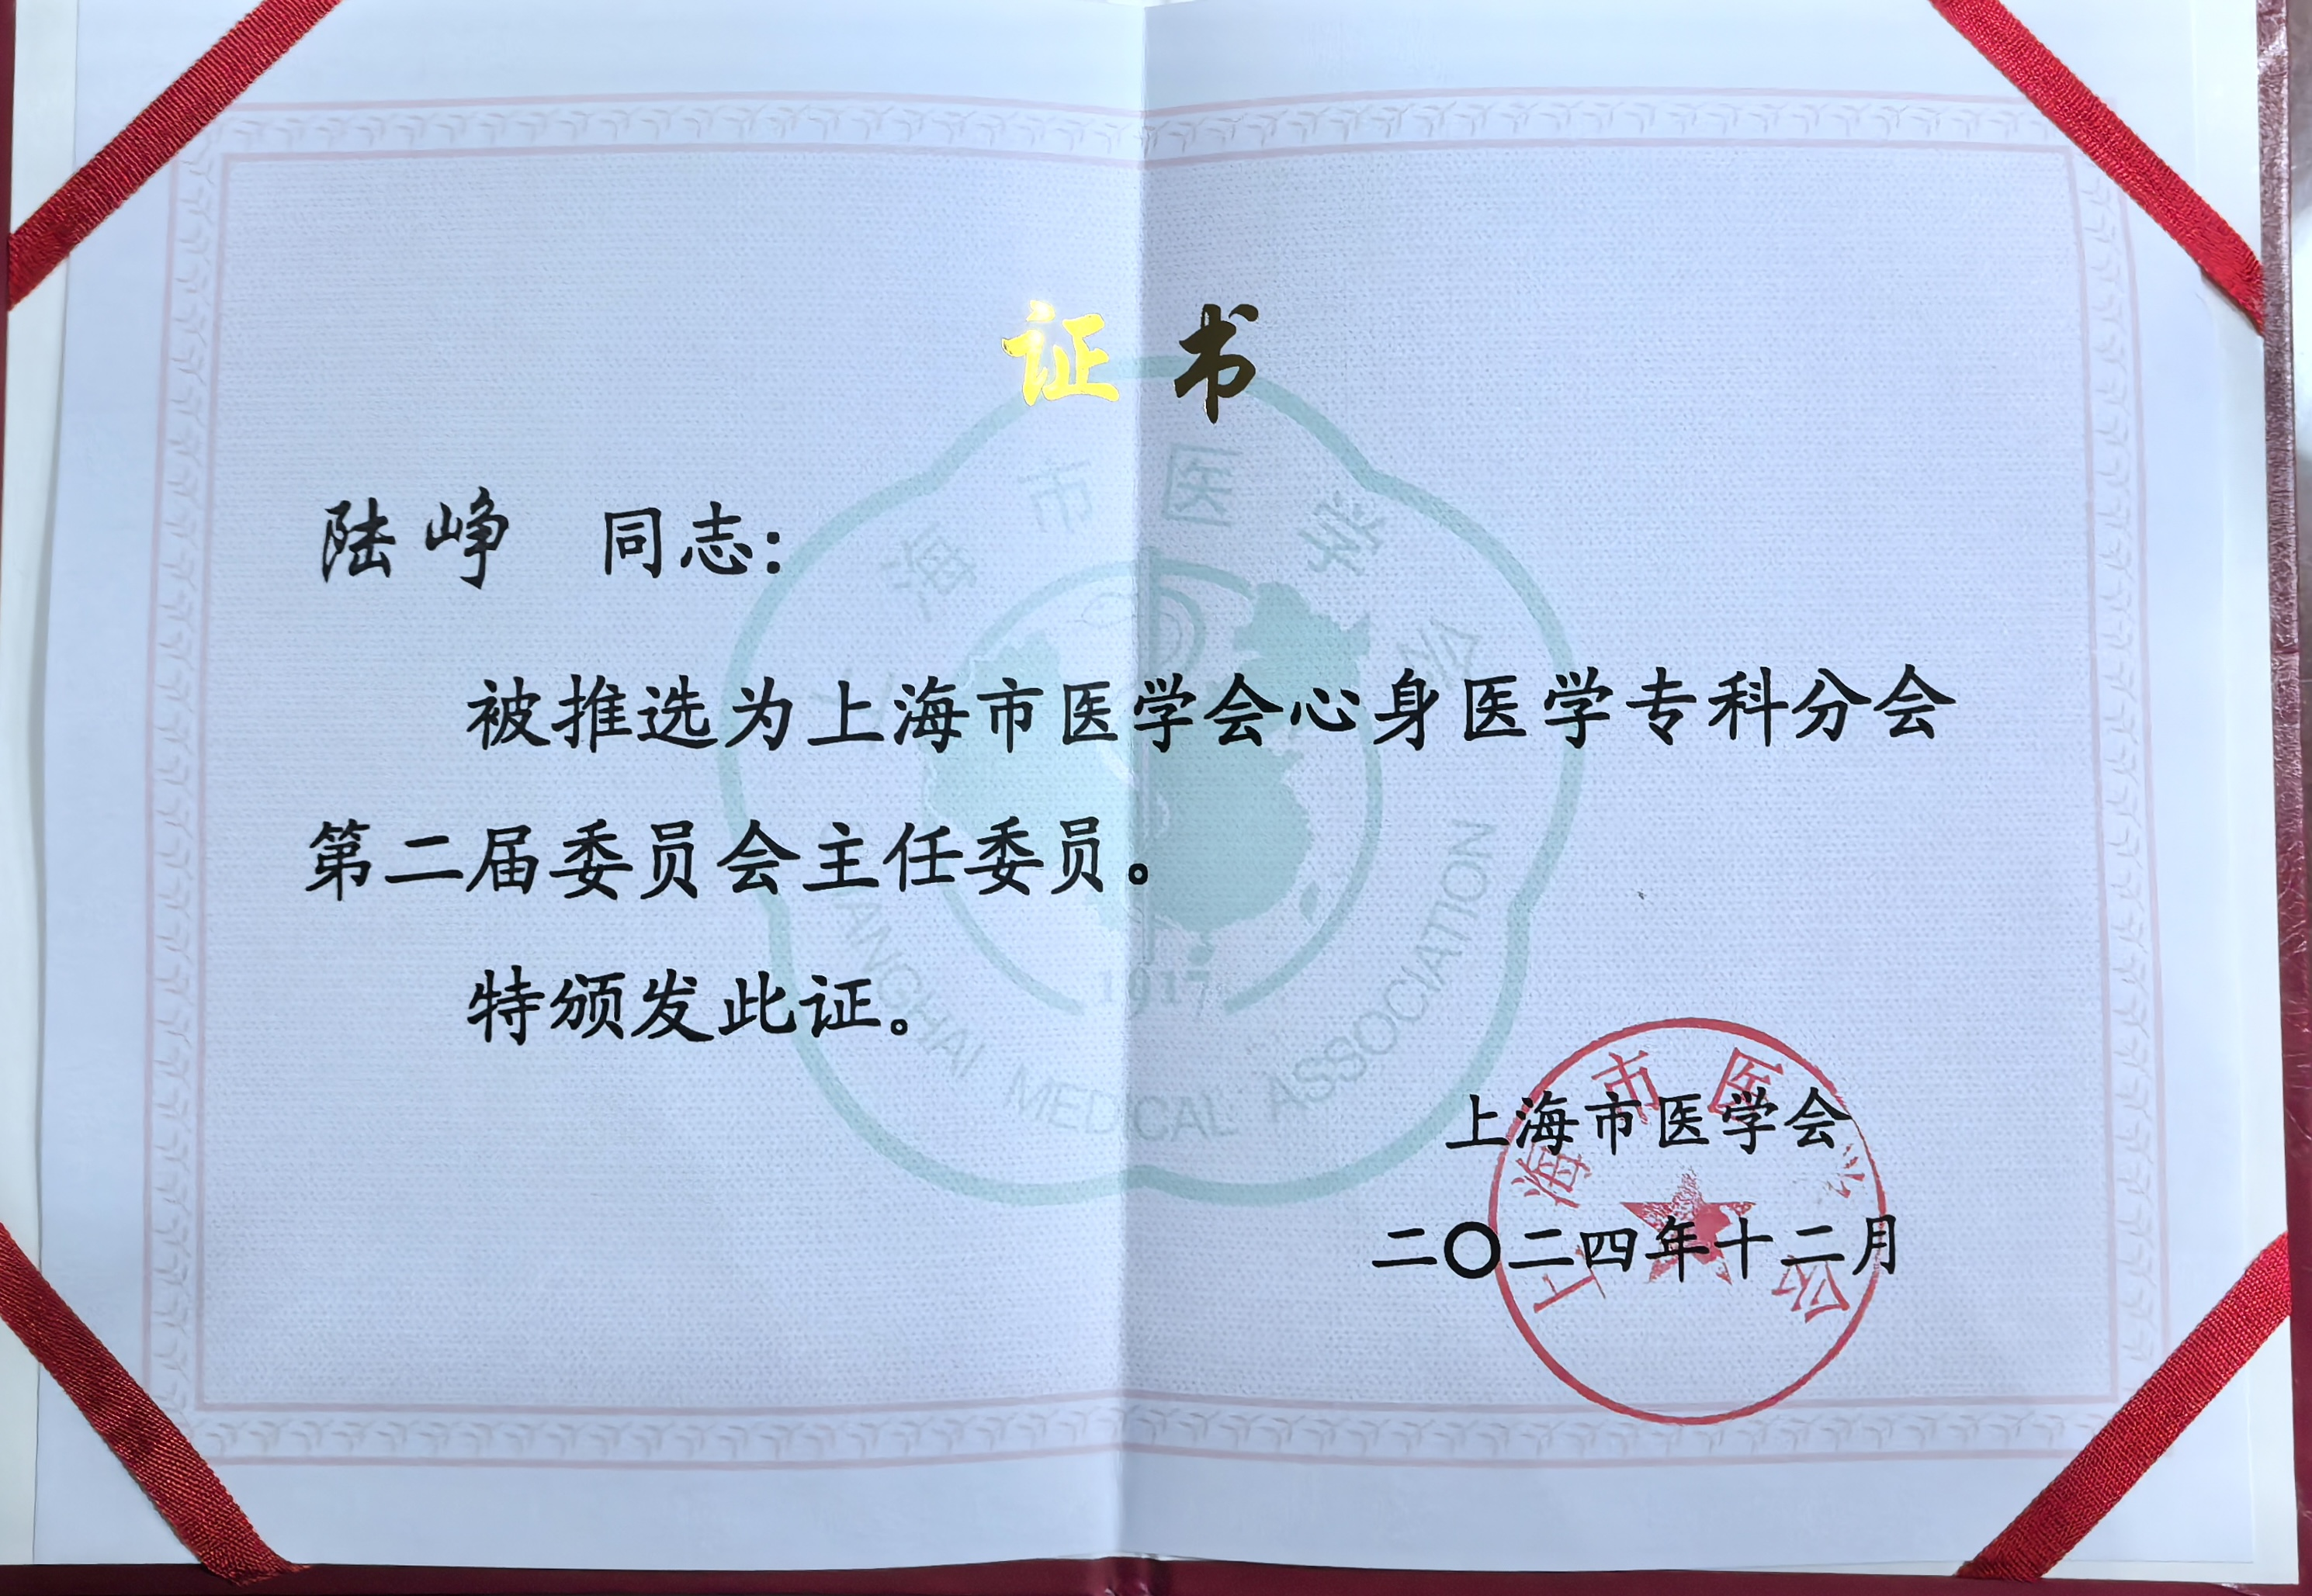 证书
陆峥 同志：
被推选为上海市医学会心身医学专科分会
第二届委员会主任委员。
特颁发此证。
上海市医学会
二〇二四年十二月
上海市医学会
上海市医学会
SHANGHAI MEDICAL ASSOCIATION
1917